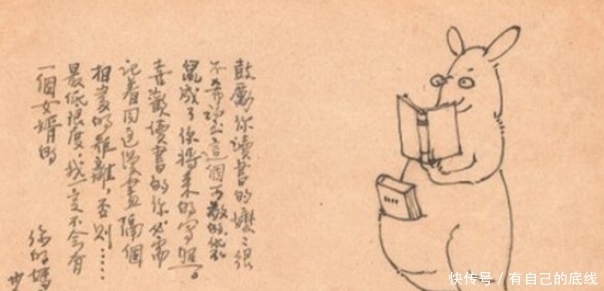 鼓勵你讀書的媽々很
不希望這個可敬的袋
鼠成了你將來的寫照。
喜歡讀書的你必需
記着同這漫畫隔個
相當的距離，否則……
最低限度：我一定不会有
一個女婿的
你的媽
快传号 / 有自己的底线